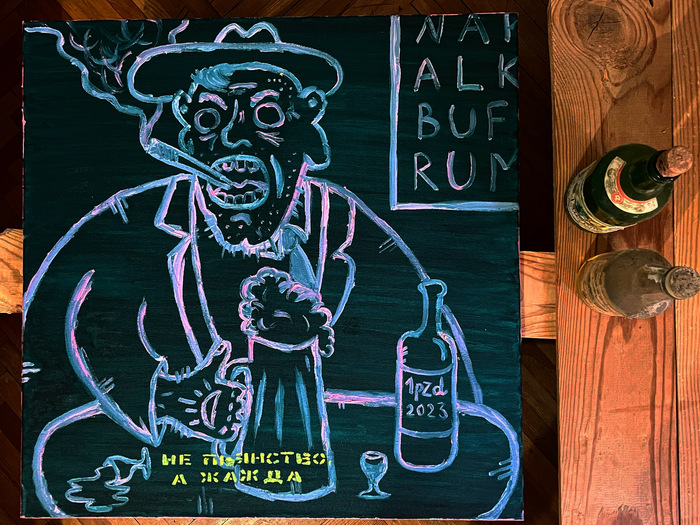 NAK
ALK
BUF
RUM
1pZd
2023
НЕ ПЬЯНСТВО,
А ЖАЖДА